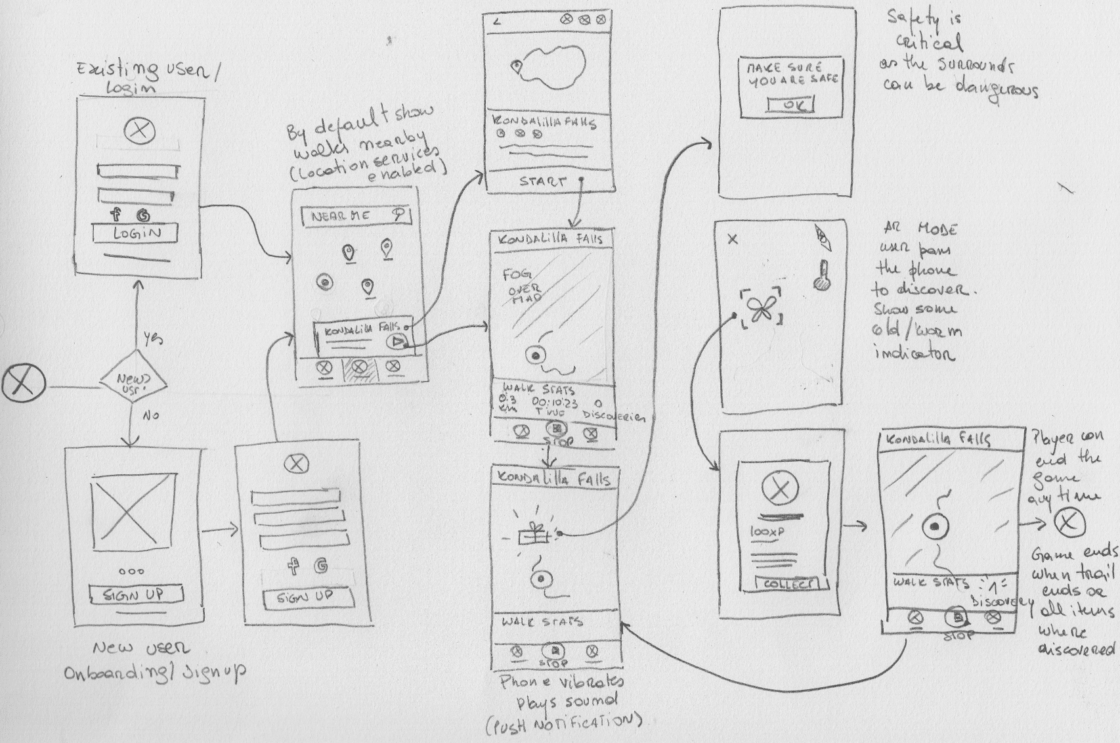 Existing user/
Login
f G
LOGIN
YES
New?
NO
SIGN UP
New user
Onboarding/Signup
f G
SIGN UP
By default show
walks nearby
(Location services
enabled)
NEAR ME
KONDALILLA FALLS
KONDALILLA FALLS
START
KONDALILLA FALLS
FOG
OVER
MAP
WALK STATS
0.3
KM
00:10:23
TIME
0
DISCOVERIES
STOP
KONDALILLA FALLS
WALK STATS
STOP
Phone vibrates
plays sound
(PUSH NOTIFICATION)
MAKE SURE
YOU ARE SAFE
OK
Safety is
critical
as the surrounds
can be dangerous
X
AR MODE
user pans
the phone
to discover.
Show some
old/warm
indicator
100XP
COLLECT
KONDALILLA FALLS
WALK STATS
1
DISCOVERY
STOP
Player can
end the
game
any time
Game ends
when trail
ends or
all items
where
discovered